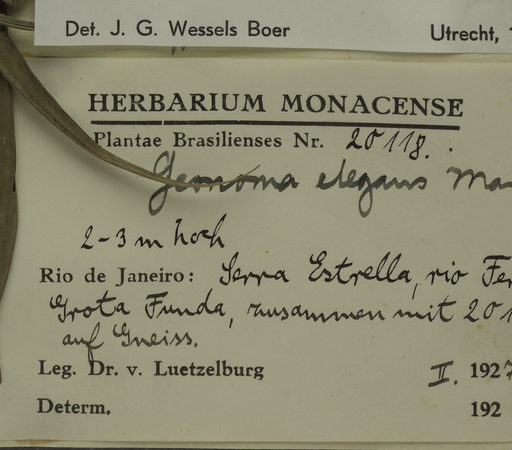 Det. J. G. Wessels Boer
Utrecht,
HERBARIUM MONACENSE
Plantae Brasilienses Nr. 20118.
Geonoma elegans Ma
2-3 m hoch
Rio de Janeiro: Serra Estrella, rio Fer
Grota Funda, zusammen mit 201
auf Gneiss.
Leg. Dr. v. Luetzelburg II. 1927
Determ. 192